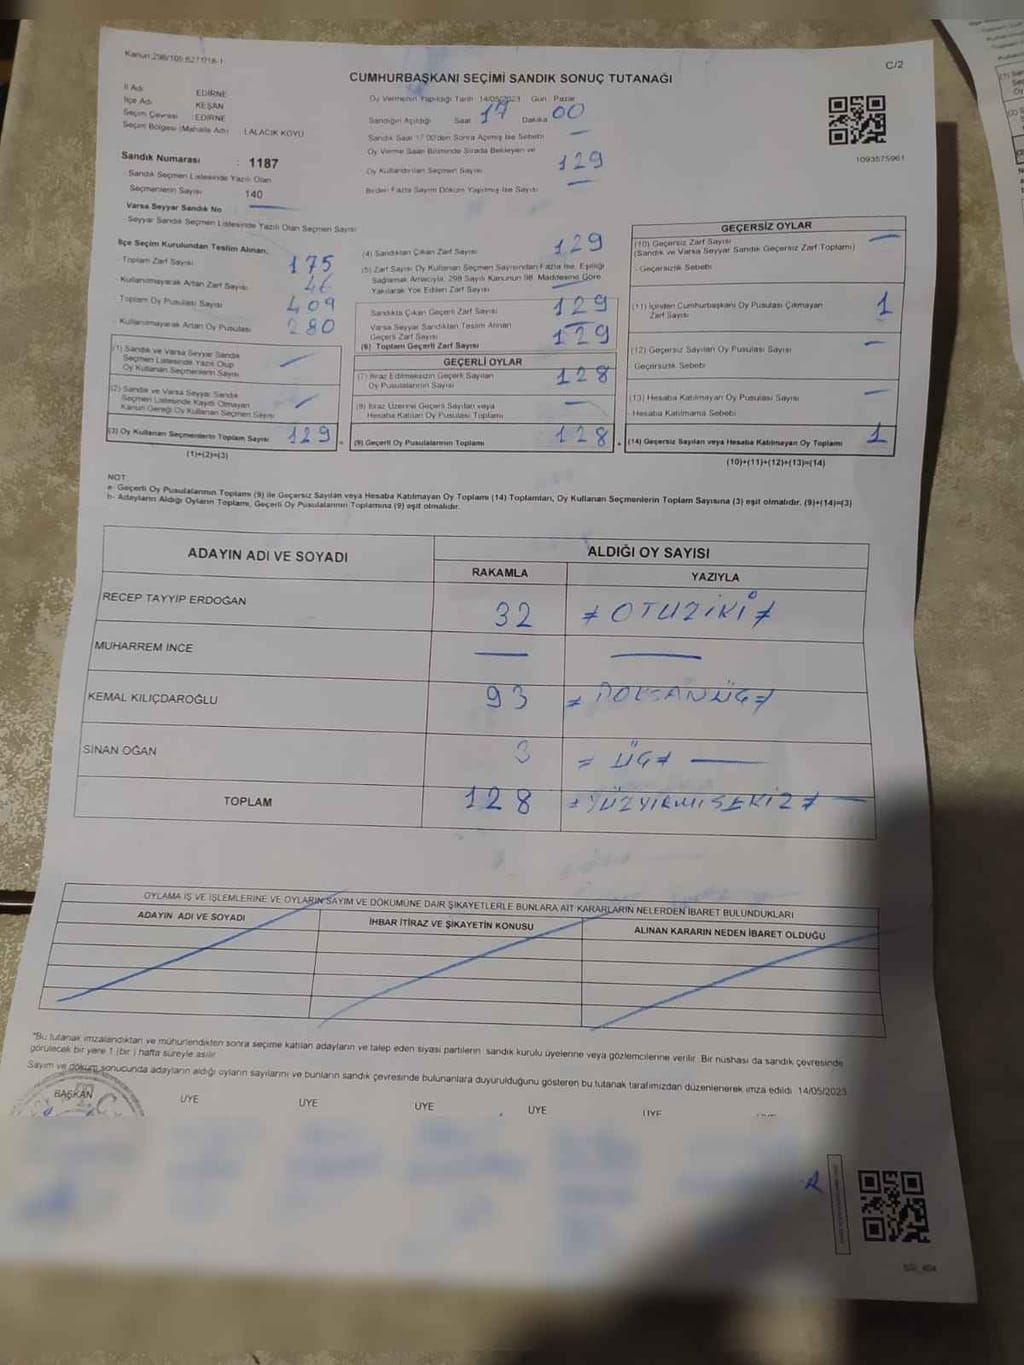 Kanun 298/105,
C/2
CUMHURBAŞKANI SEÇİMİ SANDIK SONUÇ TUTANAĞI
İl Adı EDİRNE
İlçe Adı KEŞAN
Seçim Çevresi : EDİRNE
Seçim Bölgesi (Mahalle Adı) : LALACIK KÖYÜ
Sandık Numarası : 1187
Sandık Seçmen Listesinde Yazılı Olan
Seçmenlerin Sayısı 140
Varsa Seyyar Sandık No
Seyyar Sandık Seçmen Listesinde Yazılı Olan Seçmen Sayısı
Oy Vermenin Yapıldığı Tarih 14/05/2023 Gün Pazar
Sandığın Açıldığı Saat 17 Dakika 00
Sandık Saat 17:00'den Sonra Açılmış İse Sebebi —
Oy Verme Saati Bitiminde Sırada Bekleyen ve
Oy Kullandırılan Seçmen Sayısı 129
Birden Fazla Sayım Döküm Yapılmış İse Sayısı —
1093575961
İlçe Seçim Kurulundan Teslim Alınan,
- Toplam Zarf Sayısı 175
- Kullanılmayarak Artan Zarf Sayısı 46
- Toplam Oy Pusulası Sayısı 409
- Kullanılmayarak Artan Oy Pusulası 280
(1) Sandık ve Varsa Seyyar Sandık
Seçmen Listesinde Yazılı Olup
Oy Kullanan Seçmenlerin Sayısı —
(2) Sandık ve Varsa Seyyar Sandık
Seçmen Listesinde Kaydı Olmayan
Kanun Gereği Oy Kullanan Seçmen Sayısı —
(3) Oy Kullanan Seçmenlerin Toplam Sayısı 129
(1)+(2)=(3)
(4) Sandıktan Çıkan Zarf Sayısı 129
(5) Zarf Sayısı Oy Kullanan Seçmen Sayısından Fazla İse, Eşitliği
Sağlamak Amacıyla, 298 Sayılı Kanunun 98. Maddesine Göre
Yakılarak Yok Edilen Zarf Sayısı —
Sandıkta Çıkan Geçerli Zarf Sayısı 129
Varsa Seyyar Sandıktan Teslim Alınan
Geçerli Zarf Sayısı —
(6) Toplam Geçerli Zarf Sayısı 129
GEÇERLİ OYLAR
(7) İtiraz Edilmeksizin Geçerli Sayılan
Oy Pusulalarının Sayısı 128
(8) İtiraz Üzerine Geçerli Sayılan veya
Hesaba Katılan Oy Pusulası Toplamı —
(9) Geçerli Oy Pusulalarının Toplamı 128
GEÇERSİZ OYLAR
(10) Geçersiz Zarf Sayısı —
(Sandık ve Varsa Seyyar Sandık Geçersiz Zarf Toplamı)
- Geçersizlik Sebebi
(11) İçinden Cumhurbaşkanı Oy Pusulası Çıkmayan
Zarf Sayısı 1
(12) Geçersiz Sayılan Oy Pusulası Sayısı —
Geçersizlik Sebebi
(13) Hesaba Katılmayan Oy Pusulası Sayısı —
- Hesaba Katılmama Sebebi
(14) Geçersiz Sayılan veya Hesaba Katılmayan Oy Toplamı 1
(10)+(11)+(12)+(13)=(14)
NOT
a- Geçerli Oy Pusulalarının Toplamı (9) ile Geçersiz Sayılan veya Hesaba Katılmayan Oy Toplamı (14) Toplamları, Oy Kullanan Seçmenlerin Toplam Sayısına (3) eşit olmalıdır. (9)+(14)=(3)
b- Adayların Aldığı Oyların Toplamı, Geçerli Oy Pusulalarının Toplamına (9) eşit olmalıdır.
ADAYIN ADI VE SOYADI ALDIĞI OY SAYISI
RAKAMLA YAZIYLA
RECEP TAYYİP ERDOĞAN 32 ≠ OTUZİKİ ≠
MUHARREM İNCE — —
KEMAL KILIÇDAROĞLU 93 ≠ DOKSANÜÇ ≠
SİNAN OĞAN 3 ≠ ÜÇ ≠ —
TOPLAM 128 ≠ YÜZYİRMİSEKİZ ≠ —
OYLAMA İŞ VE İŞLEMLERİNE VE OYLARIN SAYIM VE DÖKÜMÜNE DAİR ŞİKAYETLERLE BUNLARA AİT KARARLARIN NELERDEN İBARET BULUNDUKLARI
ADAYIN ADI VE SOYADI İHBAR İTİRAZ VE ŞİKAYETİN KONUSU ALINAN KARARIN NEDEN İBARET OLDUĞU
*Bu tutanak imzalandıktan ve mühürlendikten sonra seçime katılan adayların ve talep eden siyasi partilerin sandık kurulu üyelerine veya gözlemcilerine verilir. Bir nüshası da sandık çevresinde
görülecek bir yere 1 (bir) hafta süreyle asılır
Sayım ve döküm sonucunda adayların aldığı oyların sayılarını ve bunların sandık çevresinde bulunanlara duyurulduğunu gösteren bu tutanak tarafımızdan düzenlenerek imza edildi 14/05/2023
BAŞKAN ÜYE ÜYE ÜYE ÜYE ÜYE
T.C.